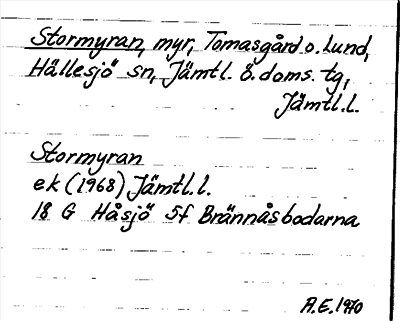 Stormyran, myr, Tomasgård o. Lund,
Hällesjö sn, Jämtl. ö. doms. tg,
Jämtl.l.
Stormyran
ek (1968) Jämtl.l.
18 G Håsjö 5f Brännåsbodarna
A.E. 1970